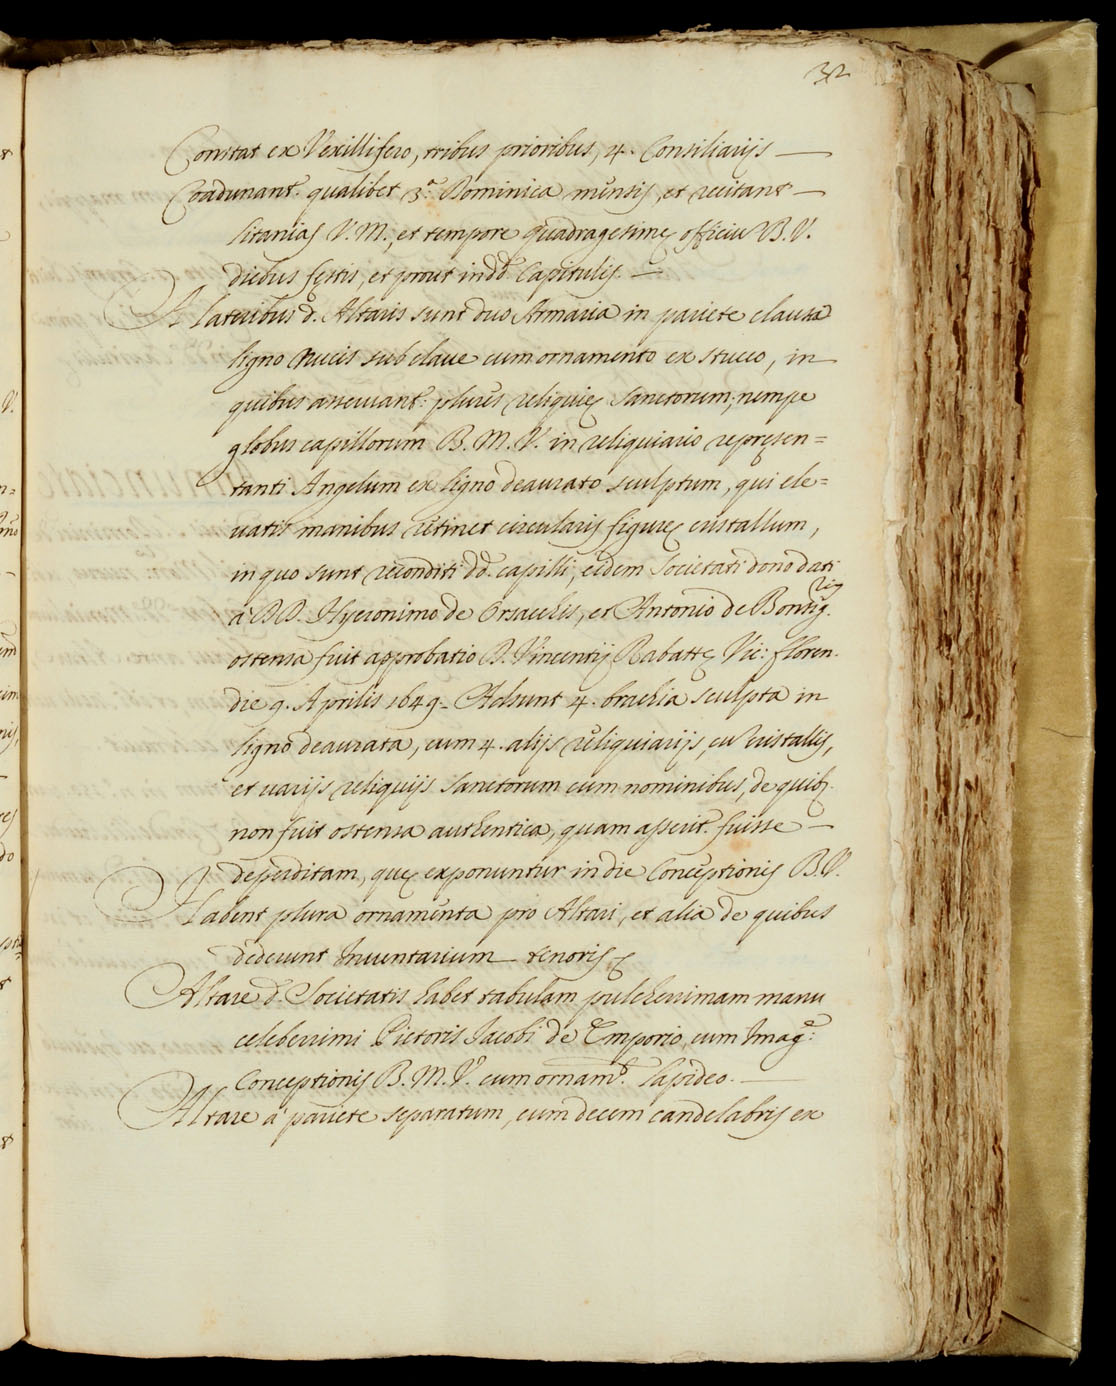 32
Constat ex Vexillifero, tribus prioribus, 4. Consiliarijs —
Coadunant. qualibet 3.a Dominica mensis, et recitant —
litanias V. M., et tempore quadragesimę officiu B. V.
diebus festis, et prout in dd. Capitulis. —
A lateribus d. Altaris sunt duo Armaria in pariete clausa
ligno nucis sub clave cum ornamento ex stucco, in
quibus asservant: plures reliquię Sanctorum; nempe
globus capillorum B. M. V. in reliquiario represen=
tanti Angelum ex ligno deaurato sculptum, qui ele=
vatis manibus retinet circularis figurę cristallum,
in quo sunt reconditi dd. capilli, eidem Societati dono dati
à DD. Hyeronimo de Orsacchis, et Antonio de
ostensa fuit approbatio D. Vincentij Rabattę Vic: floren.
die 9. Aprilis 1649. Adsunt 4. brachia sculpta in
ligno deaurata, cum 4. alijs reliquiarijs, cu cristallis,
et varijs reliquijs Sanctorum cum nominibus, de quib.
non fuit ostensa authentica, quam asserit. fuisse —
deperditam, quę exponuntur in die Conceptionis B. V.
Habent plura ornamenta pro Altari, et alia de quibus
dederunt Inventarium tenoris
Altare d. Societatis habet tabulam pulcherrimam manu
celeberrimi Pictoris Jacobi de Emporio, cum Imag.e:
Conceptionis B. M. V. cum ornam.to lapideo. —
Altare à pariete separatum, cum decem candelabris ex